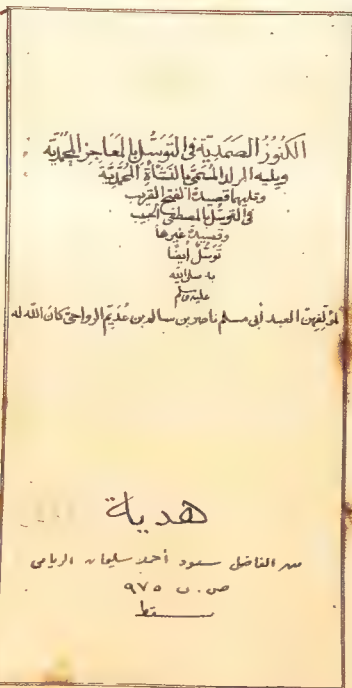 الكنوز الصمدية في التوسل بالمعاجز المحمدية
ويليه المولد المسمى بالنشأة المحمدية
وتليهما قصيدة الفتح القريب
في التوسل بالمصطفى الحبيب
وقصيدة غيرها
توسل أيضا
به صلى الله
عليه وسلم
لمؤلفهن العبد أبي مسلم ناصر بن سالم بن عديم الرواحي كان الله له
هدية
من الفاضل سعود أحمد سليمان الريامي
ص.ب ٩٧٥
مسقط